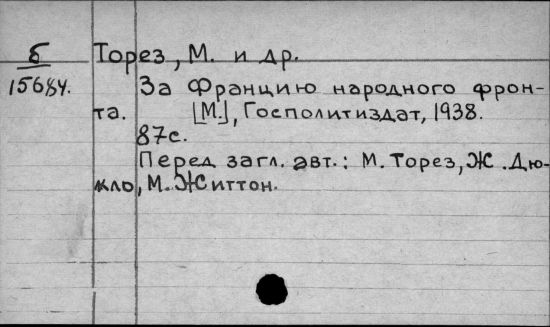 Б
15684.
Торез, М. и др.
За Францию народного фрон-
та. [М.], Госполитиздат, 1938.
87с.
Перед загл. авт.: М. Торез, Ж. Дю-
кло, М. Життон.